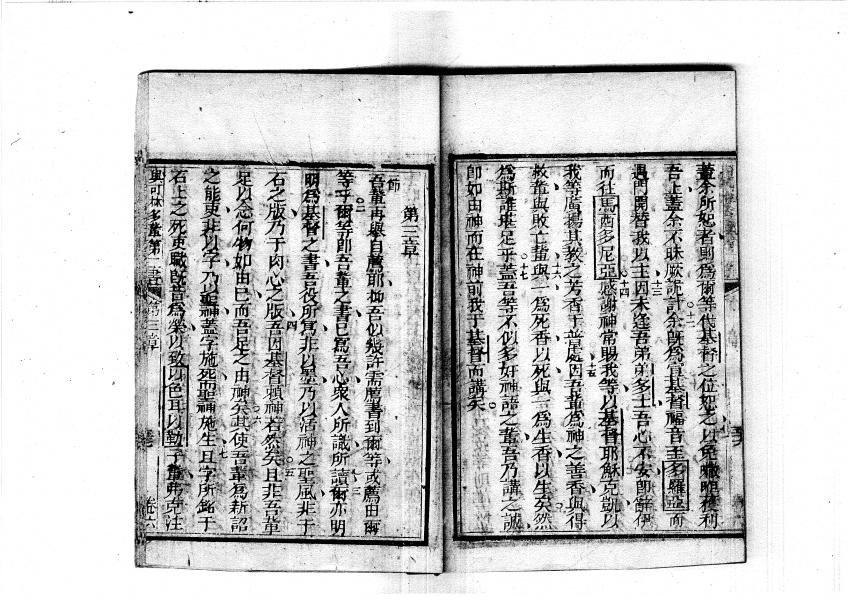 蓋余所恕者則為爾等代基督之位恕之以免讒唯獲利
吾上蓋余不昧厥詭計余既為宣基督福音至多羅亞而
遇門開替我以主因未逢吾弟弟多士吾心不安即辭伊
而往馬西多尼亞感謝神常賜我等以基督耶穌克凱以
我等廣揚其教之芳香于普處因吾輩為神之善香與得
救輩與敗亡輩與一為死香以死與一為生香以生矣然
為斯誰堪足乎蓋吾等不似多奸神語之輩吾乃講之誠
即如由神而在神前我于基督而講矣
第三章
節
吾輩再舉自薦耶抑吾似幾許需薦書到爾等或薦由爾
等乎爾等即吾輩之書已寫吾心衆人所識所讀爾亦明
明為基督之書吾役所寫非以墨乃以活神之聖風非于
石之版乃于肉心之版吾因基督賴神若然矣且非吾輩
足以念何物如由己而吾足之由神矣其使吾輩為新詔
之能吏非以字乃以聖神蓋字施死而聖神施生且字所銘于
石上之死吏職既言為榮以致以色耳以勒子輩弗克注
與可林多輩第二書
第三章
卷六